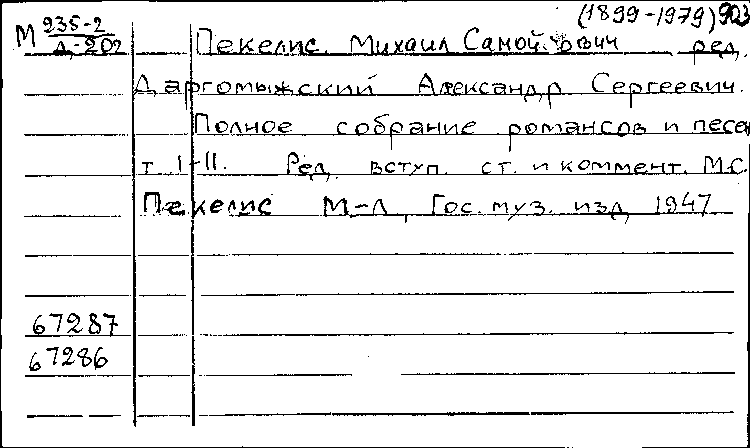 (1899-1979) 903
М 235-2
Д-202
Пекелис Михаил Самойлович ред.
Даргомыжский Александр Сергеевич.
Полное собрание романсов и песен
т. I-II. Ред. вступ. ст. и коммент. М.С.
Пекелис М-Л, Гос. муз. изд, 1947
67287
67286